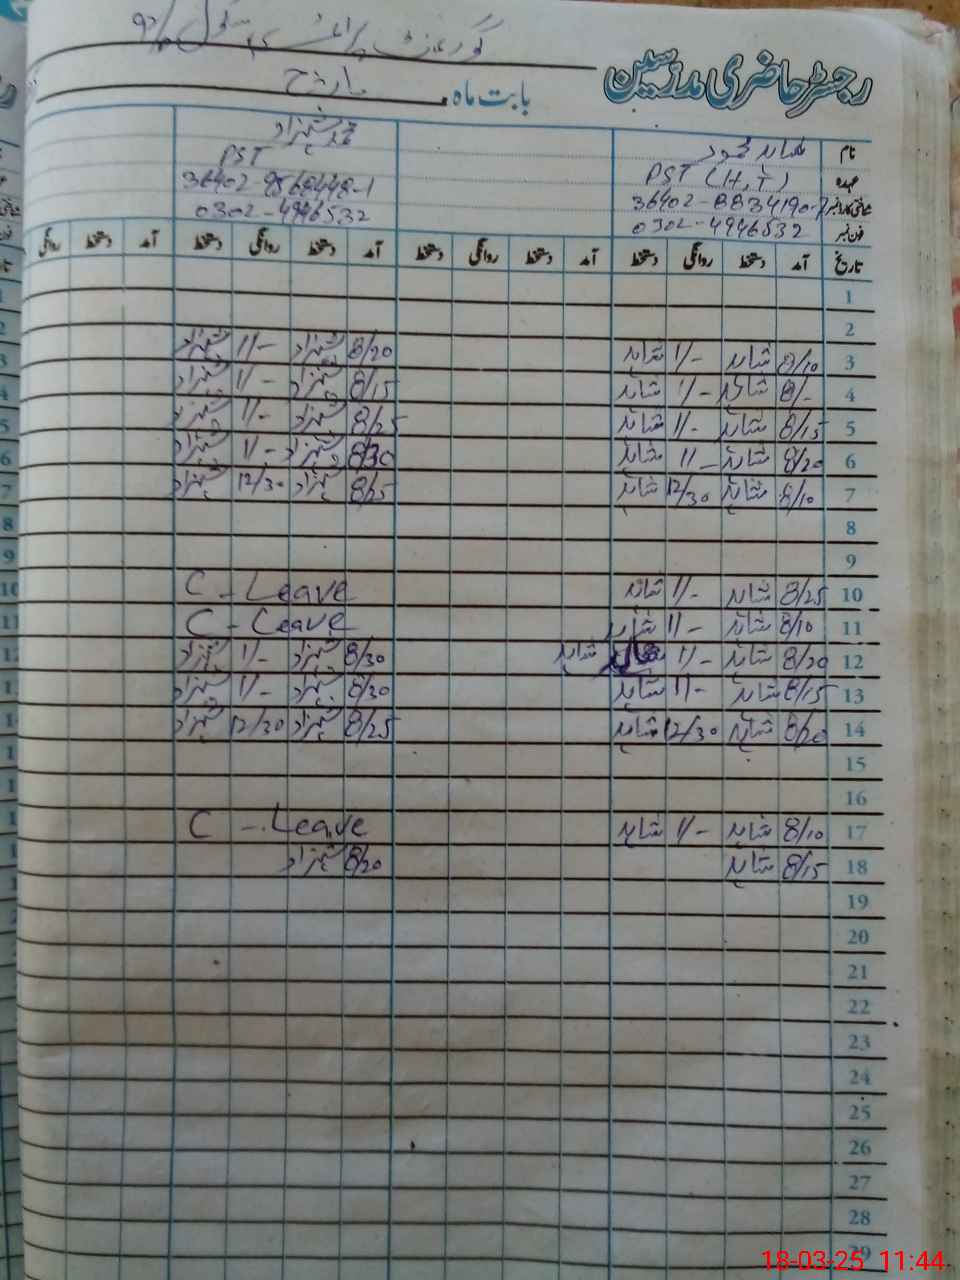 گورنمنٹ پرائمری سکول
رجسٹر حاضری مدرسین
بابت ماہ مارچ
نام شاہد محمود محمد شہزاد
عہدہ PST (H,T) PST
36402-8834190-7 36402-9568448-1
فون نمبر 0302-4946532 0302-4946532
تاریخ آمد دستخط روانگی دستخط آمد دستخط روانگی دستخط آمد دستخط روانگی
1
2
3 8/10 شاہد 1/- شاہد 8/20 شہزاد 1/- شہزاد
4 8/- شاہد 1/- شاہد 8/15 شہزاد 1/- شہزاد
5 8/15 شاہد 1/- شاہد 8/25 شہزاد 1/- شہزاد
6 8/20 شاہد 1/- شاہد 8/30 شہزاد 1/- شہزاد
7 8/10 شاہد 12/30 شاہد 8/25 شہزاد 12/30 شہزاد
8
9
10 8/25 شاہد 1/- شاہد C - Leave
11 8/10 شاہد 1/- شاہد C - Leave
12 8/20 شاہد 1/- شاہد 8/30 شہزاد 1/- شہزاد
13 8/15 شاہد 1/- شاہد 8/30 شہزاد 1/- شہزاد
14 8/20 شاہد 12/30 شاہد 8/25 شہزاد 12/30 شہزاد
15
16
17 8/10 شاہد 1/- شاہد C - Leave
18 8/15 شاہد 8/20 شہزاد
19
20
21
22
23
24
25
26
27
28
29
18-03-25 11:44